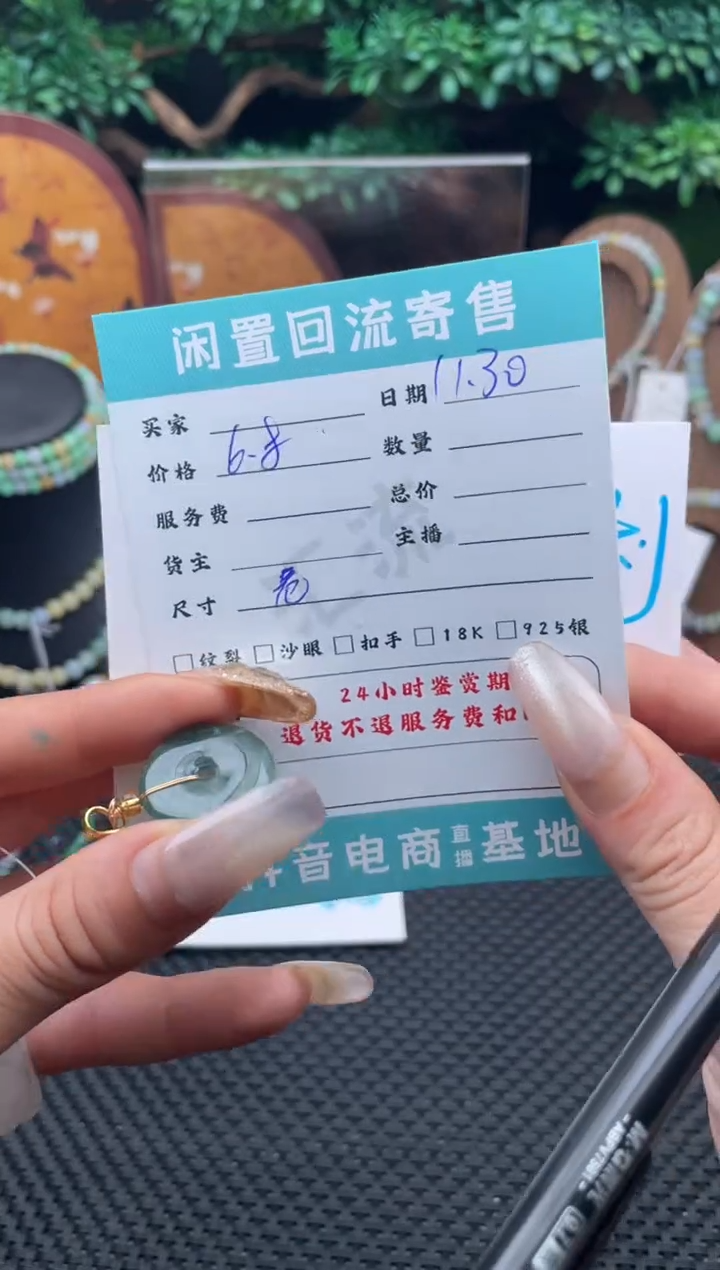 闲置回流寄售
买家 日期 11.30
价格 6-8 数量
服务费 总价
货主 主播
尺寸
纹裂 沙眼 扣手 18K 925银
24小时鉴赏期
退货不退服务费和
抖音电商直播基地